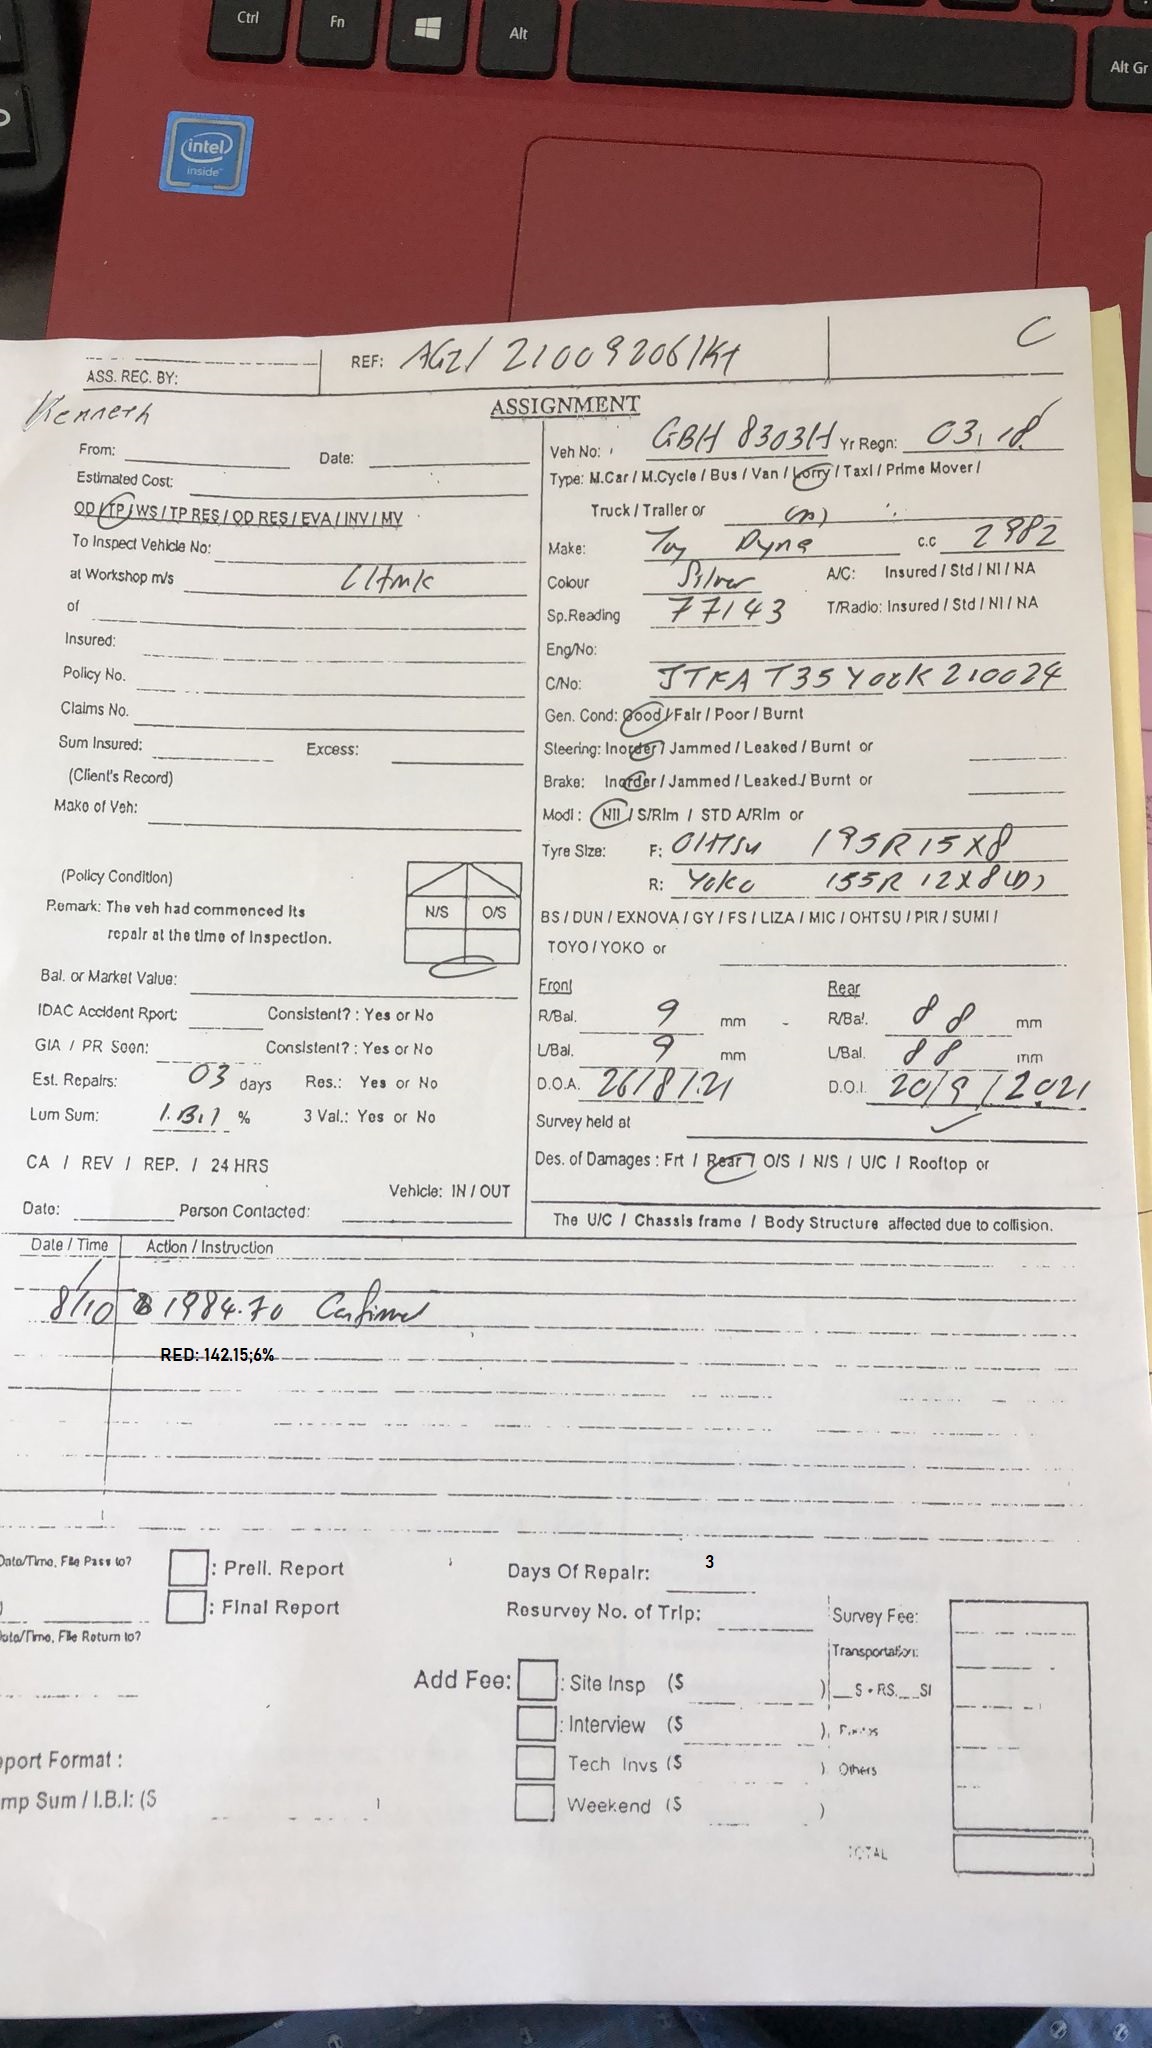 Ctrl Fn Alt Alt Gr
intel
inside
C
ASS. REC. BY:
REF: AGZ/ 21009206/Kt
Kenneth
ASSIGNMENT
From: Date:
Estimated Cost:
OD / TP / WS / TP RES / OD RES / EVA / INV / MV
To Inspect Vehicle No:
at Workshop m/s
of
Insured:
Policy No.
Claims No.
Sum Insured: Excess:
(Client's Record)
Make of Veh:
(Policy Condition)
N/S O/S
Remark: The veh had commenced its
repair at the time of Inspection.
Bal. or Market Value:
IDAC Accident Rport: Consistent? : Yes or No
GIA / PR Seen: Consistent? : Yes or No
Est. Repairs: 03 days Res.: Yes or No
Lum Sum: I.B.I % 3 Val.: Yes or No
CA / REV / REP. / 24 HRS
Vehicle: IN / OUT
Date: Person Contacted:
Veh No: GBH 8303H Yr Regn: 03, 18
Type: M.Car / M.Cycle / Bus / Van / Lorry / Taxi / Prime Mover /
Truck / Trailer or
Make: Toy Dyna c.c 2982
Colour Silver A/C: Insured / Std / NI / NA
Sp.Reading 77143 T/Radio: Insured / Std / NI / NA
Eng/No:
C/No: JTFAT35Y00K210024
Gen. Cond: Good / Fair / Poor / Burnt
Steering: Inorder / Jammed / Leaked / Burnt or
Brake: Inorder / Jammed / Leaked / Burnt or
Modi : Nil / S/Rim / STD A/Rim or
Tyre Size: F: OHTSU 195R15X8
R: Yoko 155R 12X8(D)
BS / DUN / EXNOVA / GY / FS / LIZA / MIC / OHTSU / PIR / SUMI /
TOYO / YOKO or
Front Rear
R/Bal. 9 mm R/Bal. 8 8 mm
L/Bal. 9 mm L/Bal. 8 8 mm
D.O.A. 26/8/21 D.O.I. 20/9/2021
Survey held at
Des. of Damages : Frt / Rear / O/S / N/S / U/C / Rooftop or
The U/C / Chassis frame / Body Structure affected due to collision.
Date / Time Action / Instruction
8/10 $ 1984.70 Confirmed
RED: 142.15;6%
Date/Time, File Pass to?
: Prell. Report
: Final Report
Date/Time, File Return to?
Days Of Repair: 3
Resurvey No. of Trip:
Survey Fee:
Transportation:
Add Fee: : Site Insp ($ ) __S + RS.__SI
: Interview ($ ),
Tech Invs ($ ) Others
Weekend ($ )
TOTAL
port Format :
mp Sum / I.B.I: ($ )